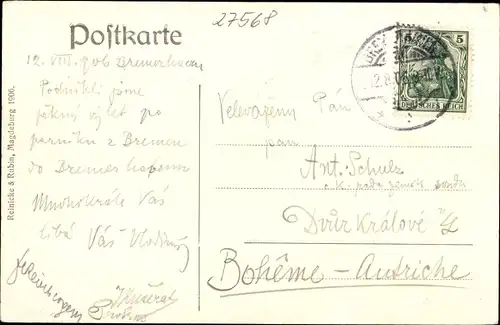 27568
Postkarte
12. VIII. 906 Bremerhaven
Podnikli jsme
pěkný výlet po
parníku z Bremen
do Bremerhafenu
Mnohokráte Vás
líbá Váš
Reinicke & Rubin, Magdeburg 1906.
5
DEUTSCHES REICH
Velevážený Pán
pan
Ant. Schulz
c. k. rada zemsk. soudu
Dvůr Králové n/L
Bohême - Autriche